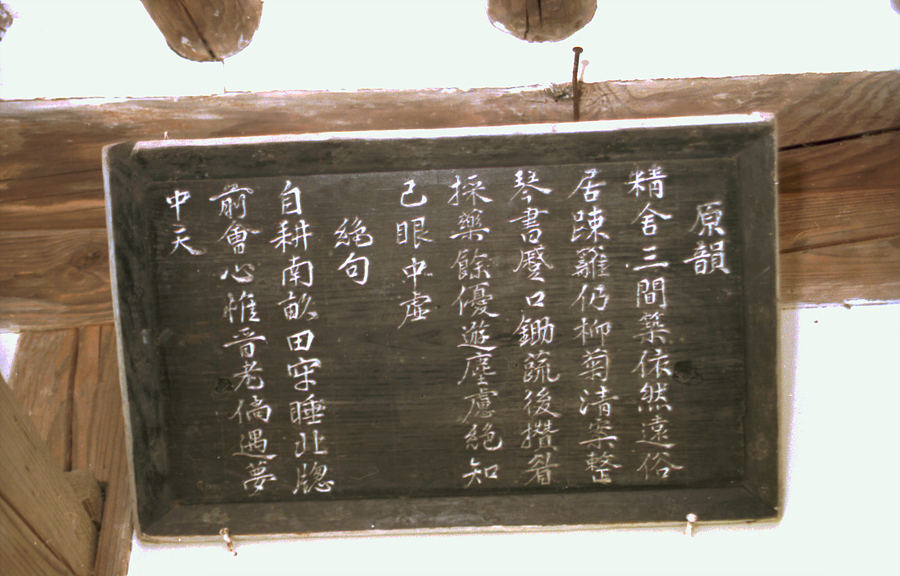 原韻
精舍三間築依然遠俗
居踈籬仍柳菊清案整
琴書口鋤蔬後攢眉
採藥餘優遊塵慮絶知
己眼中虛
絶句
自耕南畝田牢睡北牕
前會心惟晉老倘遇夢
中天